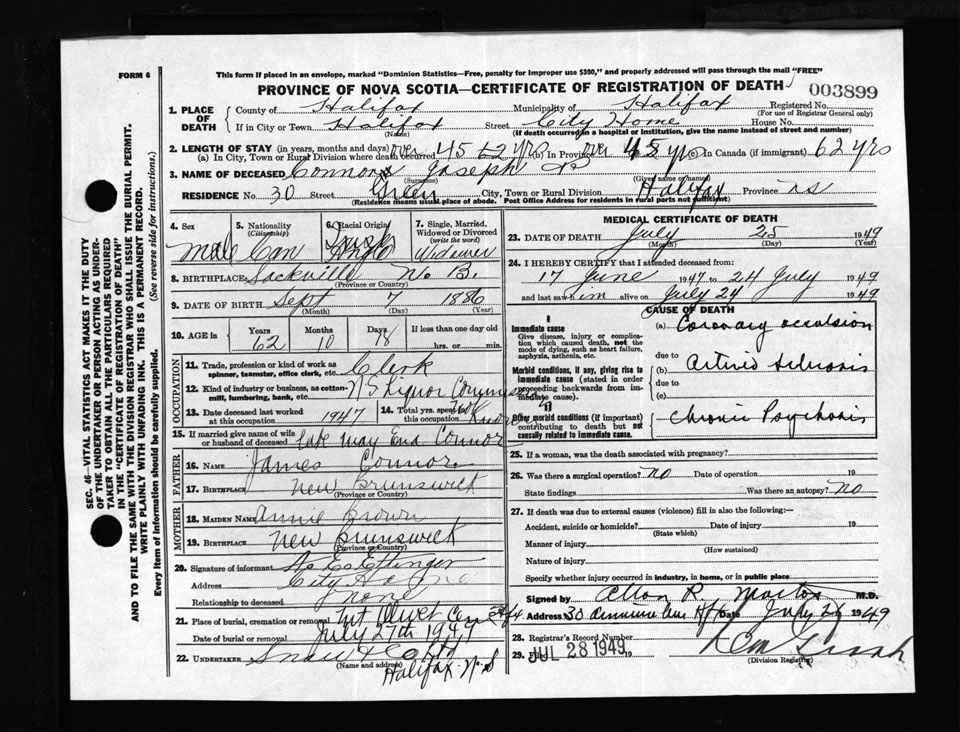 FORM 6
This form if placed in an envelope, marked "Dominion Statistics—Free, penalty for improper use $300," and properly addressed will pass through the mail "FREE"
PROVINCE OF NOVA SCOTIA—CERTIFICATE OF REGISTRATION OF DEATH
003899
1. PLACE OF DEATH
County of Halifax Municipality of Halifax Registered No.
(For use of Registrar General only)
If in City or Town Halifax Street City Home House No.
(Name) (If death occurred in a hospital or institution, give the name instead of street and number)
2. LENGTH OF STAY (in years, months and days)
(a) In City, Town or Rural Division where death occurred over 45 yrs (b) In Province over 45 yrs (c) In Canada (if immigrant) 62 yrs
3. NAME OF DECEASED Connor Joseph
(Surname) (Given name or names)
RESIDENCE No. 30 Green City, Town or Rural Division Halifax Province ns
(Residence means usual place of abode. Post Office Address for residents in rural parts not sufficient)
4. Sex Male
5. Nationality (Citizenship) Can
6. Racial Origin Irish
7. Single, Married, Widowed or Divorced (write the word) Widower
8. BIRTHPLACE Sackville N. B.
(Province or Country)
9. DATE OF BIRTH Sept 7 1886
(Month) (Day) (Year)
10. AGE in Years 62 Months 10 Days 18 If less than one day old hrs. or min.
OCCUPATION
11. Trade, profession or kind of work as spinner, teamster, office clerk, etc. Clerk
12. Kind of industry or business, as cotton-mill, lumbering, bank, etc. N S Liquor Commission
13. Date deceased last worked at this occupation 1947
14. Total yrs. spent in this occupation Not Known
15. If married give name of wife or husband of deceased late May Ena Connor
FATHER
16. Name James Connor
17. Birthplace New Brunswick
(Province or Country)
MOTHER
18. Maiden Name Annie Brown
19. Birthplace New Brunswick
(Province or Country)
20. Signature of informant Ettinger
Address City Home
Relationship to deceased none
21. Place of burial, cremation or removal Mt Olivet Cem Hfx
Date of burial or removal July 27th 1949
22. UNDERTAKER Snow & Co Ltd
(Name and address)
Halifax N.S
MEDICAL CERTIFICATE OF DEATH
23. DATE OF DEATH July 25 1949
(Month) (Day) (Year)
24. I HEREBY CERTIFY that I attended deceased from:
17 June 1947 to 24 July 1949
and last saw him alive on July 24 1949
CAUSE OF DEATH
I
Immediate cause
Give disease, injury or complication which caused death, not the mode of dying, such as heart failure, asphyxia, asthenia, etc.
(a) Coronary occulsion
due to
Morbid conditions, if any, giving rise to immediate cause (stated in order proceeding backwards from immediate cause).
(b) Arterio Sclerosis
due to
(c)
II
Other morbid conditions (if important) contributing to death but not causally related to immediate cause.
Chronic Psychosis
25. If a woman, was the death associated with pregnancy?
26. Was there a surgical operation? no Date of operation 19
State findings Was there an autopsy? no
27. If death was due to external causes (violence) fill in also the following:—
Accident, suicide or homicide? Date of injury 19
(State which)
Manner of injury
(How sustained)
Nature of injury
Specify whether injury occurred in industry, in home, or in public place
Signed by Allan R. Morton M.D.
Address 30 Hfx Date July 26 1949
28. Registrar's Record Number
29. JUL 28 1949 19
(Division Registrar)
SEC. 46—VITAL STATISTICS ACT MAKES IT THE DUTY
OF THE UNDERTAKER OR PERSON ACTING AS UNDER-
TAKER TO OBTAIN ALL THE PARTICULARS REQUIRED
IN THE "CERTIFICATE OF REGISTRATION OF DEATH"
AND TO FILE THE SAME WITH THE DIVISION REGISTRAR WHO SHALL ISSUE THE BURIAL PERMIT.
WRITE PLAINLY WITH UNFADING INK. THIS IS A PERMANENT RECORD.
Every item of information should be carefully supplied. (See reverse side for instructions.)